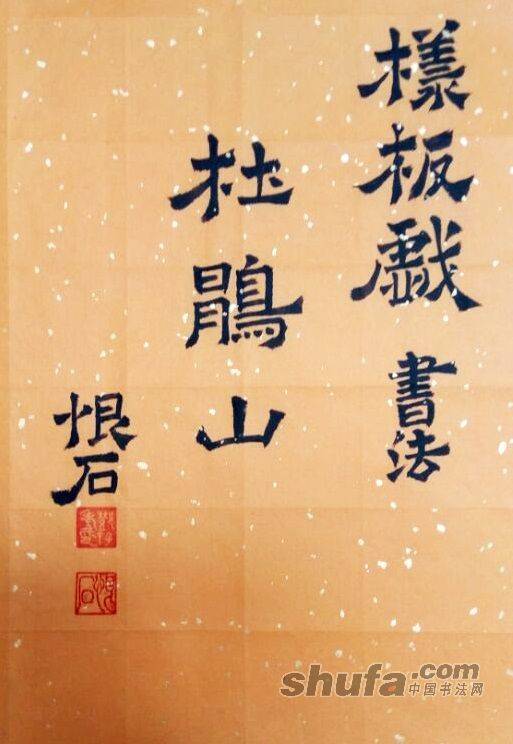 樣板戯書法
杜鵑山
恨石
shufa.com
中国书法网